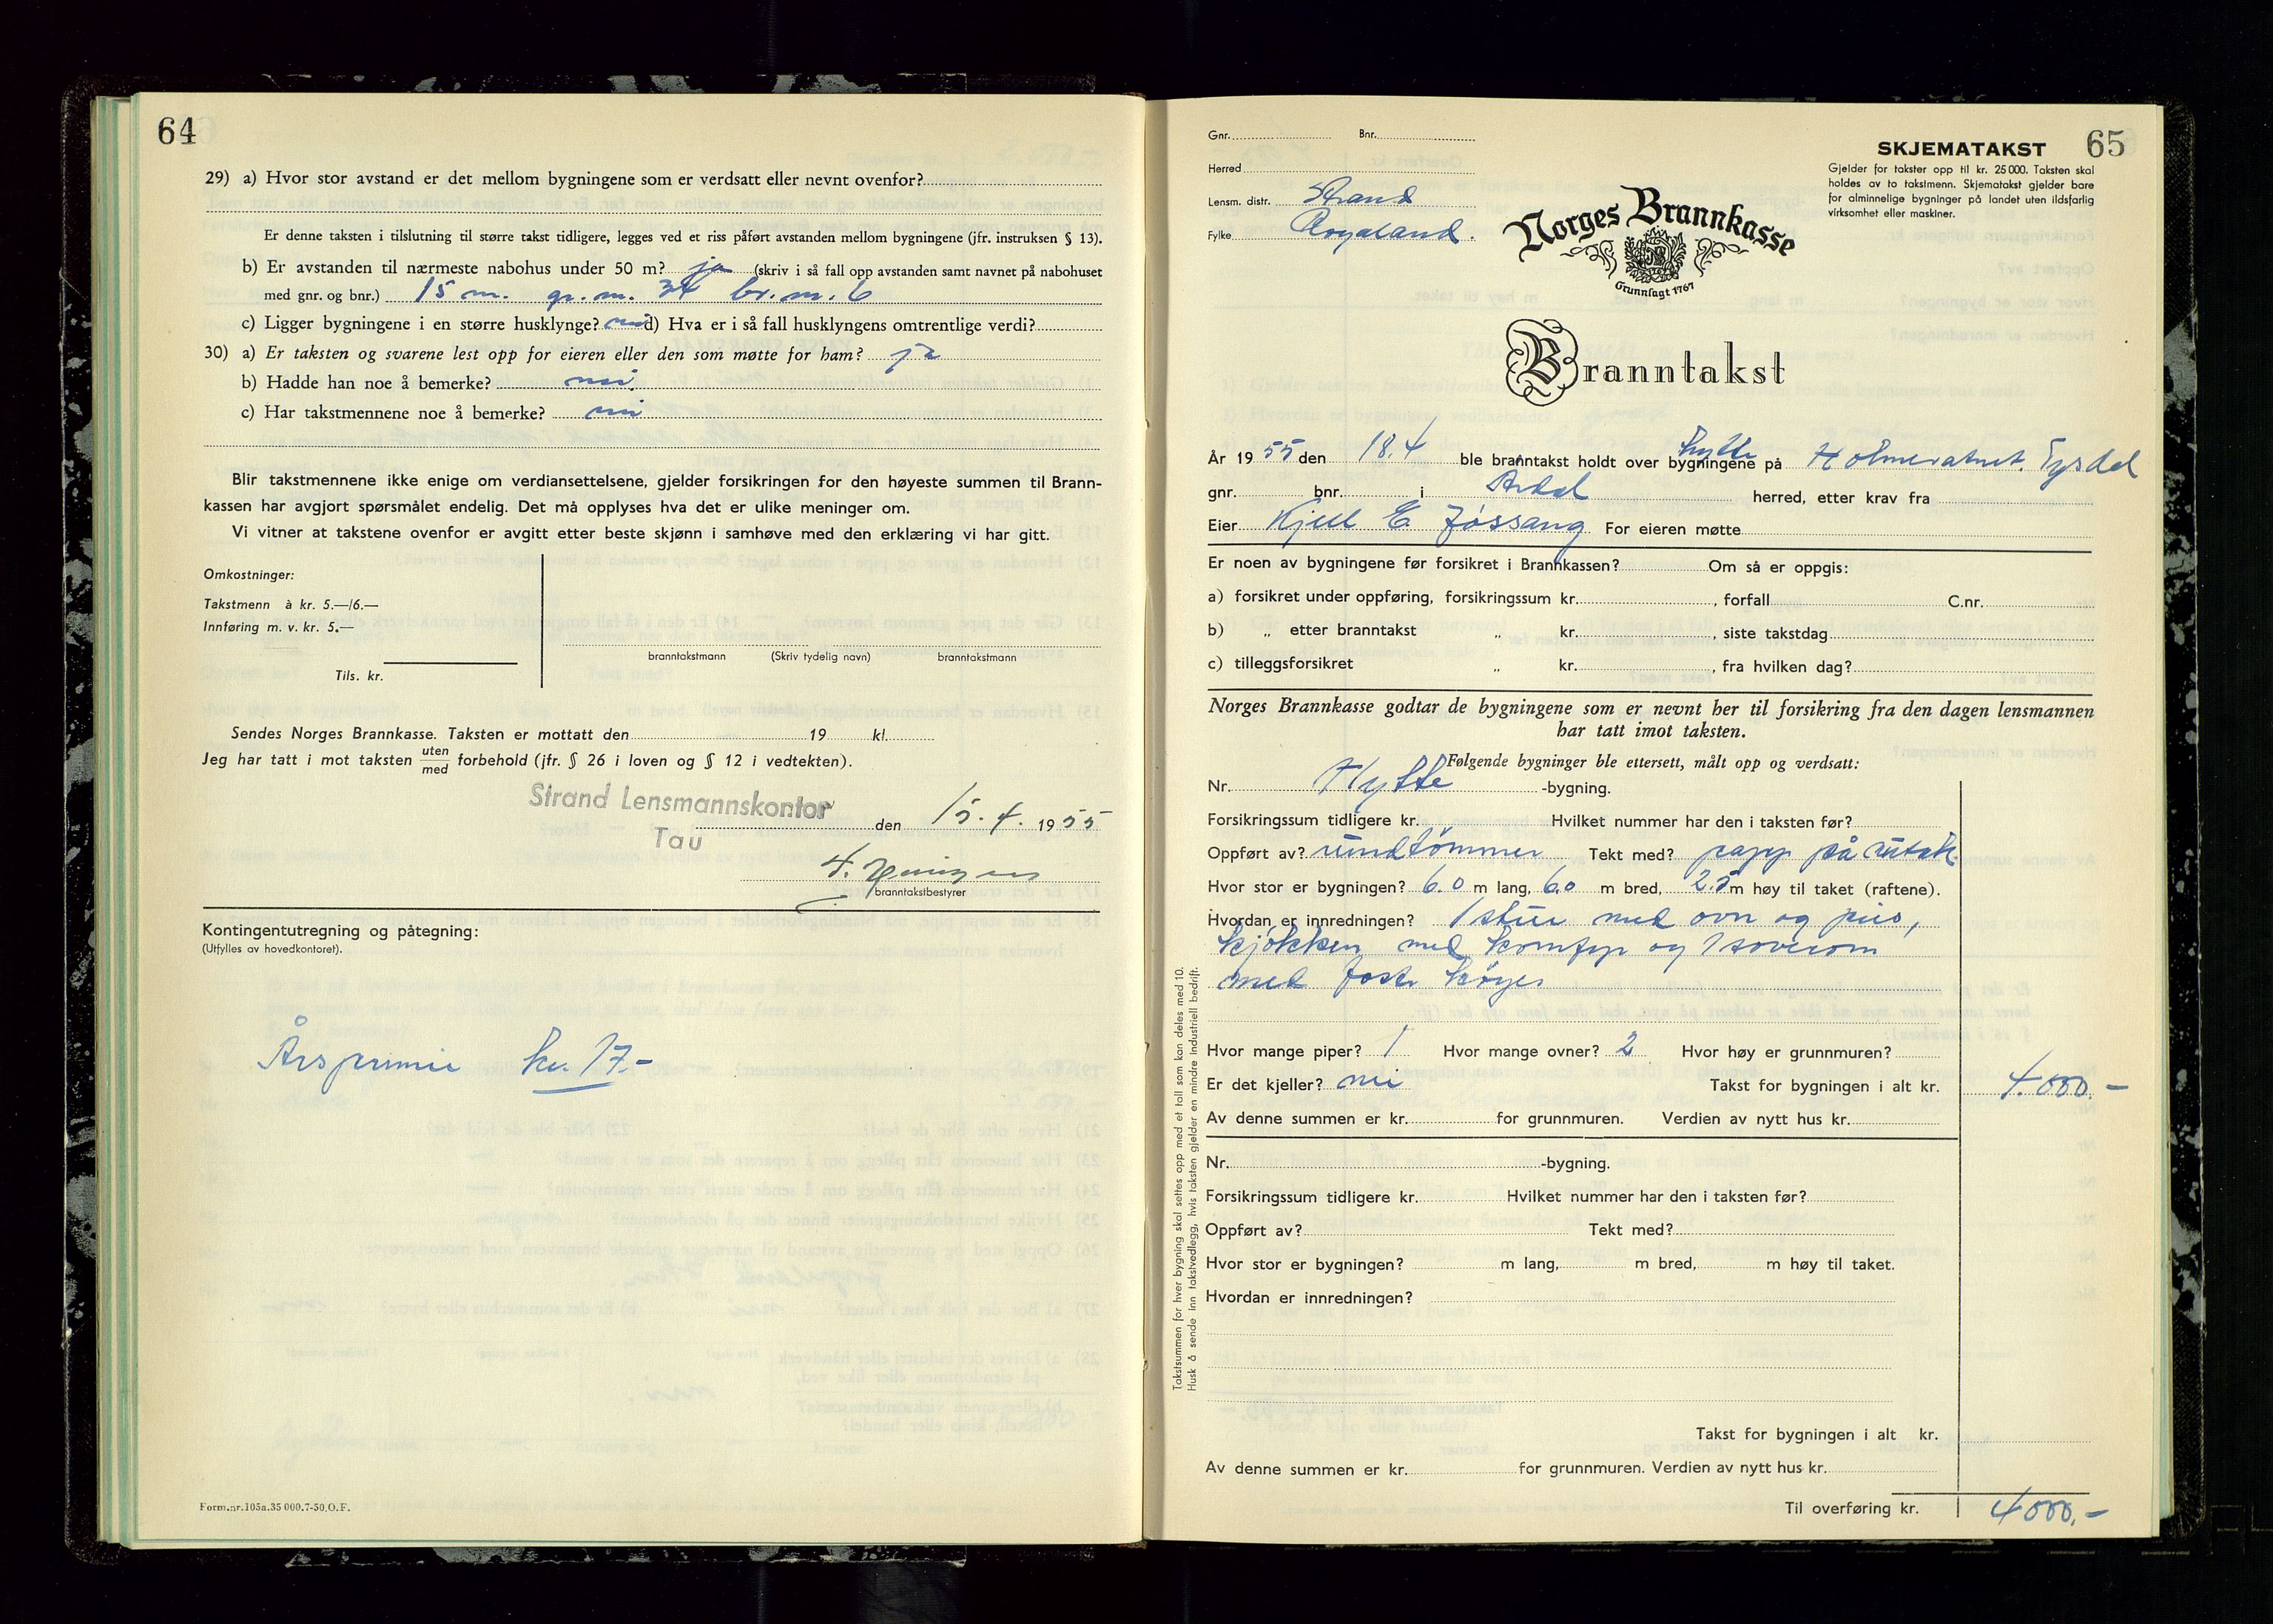 64
29) a) Hvor stor avstand er det mellom bygningene som er verdsatt eller nevnt ovenfor?
Er denne taksten i tilslutning til større takst tidligere, legges ved et riss påført avstanden mellom bygningene (jfr. instruksen § 13).
b) Er avstanden til nærmeste nabohus under 50 m? ja (skriv i så fall opp avstanden samt navnet på nabohuset
med gnr. og bnr.) 15 m. gr. nr. 34 br. nr. 6
c) Ligger bygningene i en større husklynge? nei d) Hva er i så fall husklyngens omtrentlige verdi?
30) a) Er taksten og svarene lest opp for eieren eller den som møtte for ham? ja
b) Hadde han noe å bemerke? nei
c) Har takstmennene noe å bemerke? nei
Blir takstmennene ikke enige om verdiansettelsene, gjelder forsikringen for den høyeste summen til Brann-
kassen har avgjort spørsmålet endelig. Det må opplyses hva det er ulike meninger om.
Vi vitner at takstene ovenfor er avgitt etter beste skjønn i samhøve med den erklæring vi har gitt.
Omkostninger:
Takstmenn à kr. 5.—/6.—
Innføring m. v. kr. 5.—
Tils. kr.
branntakstmann (Skriv tydelig navn) branntakstmann
Sendes Norges Brannkasse. Taksten er mottatt den 19 kl.
Jeg har tatt i mot taksten uten/med forbehold (jfr. § 26 i loven og § 12 i vedtekten).
Strand Lensmannskontor
Tau
den 15.4. 1955
branntakstbestyrer
Kontingentutregning og påtegning:
(Utfylles av hovedkontoret).
Årspremie kr. 17.-
Form.nr.105a.35 000.7-50.O.F.
65
SKJEMATAKST
Gjelder for takster opp til kr. 25 000. Taksten skal
holdes av to takstmenn. Skjematakst gjelder bare
for alminnelige bygninger på landet uten ildsfarlig
virksomhet eller maskiner.
Gnr. Bnr.
Herred
Lensm. distr. Strand
Fylke Rogaland.
Norges Brannkasse
Grunnlagt 1767
Branntakst
År 1955 den 18.4 ble branntakst holdt over bygningene på hytte Holmevatnet. Tysdal
gnr. bnr. i Årdal herred, etter krav fra
Eier Kjell E. Jøssang For eieren møtte
Er noen av bygningene før forsikret i Brannkassen? Om så er oppgis:
a) forsikret under oppføring, forsikringssum kr. , forfall C.nr.
b) „ etter branntakst „ kr. , siste takstdag
c) tilleggsforsikret „ kr. , fra hvilken dag?
Norges Brannkasse godtar de bygningene som er nevnt her til forsikring fra den dagen lensmannen
har tatt imot taksten.
Følgende bygninger ble ettersett, målt opp og verdsatt:
Nr. Hytte -bygning.
Forsikringssum tidligere kr. Hvilket nummer har den i taksten før?
Oppført av? rundtømmer Tekt med? papp på sutak.
Hvor stor er bygningen? 6.0 m lang, 6.0 m bred, 2.5 m høy til taket (raftene).
Hvordan er innredningen? 1 stue med ovn og peis,
kjøkken med komfyr og 1 soverom
med faste køyer
Hvor mange piper? 1 Hvor mange ovner? 2 Hvor høy er grunnmuren?
Er det kjeller? nei Takst for bygningen i alt kr. 4.000.-
Av denne summen er kr. for grunnmuren. Verdien av nytt hus kr.
Nr. -bygning.
Forsikringssum tidligere kr. Hvilket nummer har den i taksten før?
Oppført av? Tekt med?
Hvor stor er bygningen? m lang, m bred, m høy til taket.
Hvordan er innredningen?
Takst for bygningen i alt kr.
Av denne summen er kr. for grunnmuren. Verdien av nytt hus kr.
Til overføring kr. 4000.-
Takstsummen for hver bygning skal settes opp med et tall som kan deles med 10.
Husk å sende inn takstvedlegg, hvis taksten gjelder en mindre industriell bedrift.